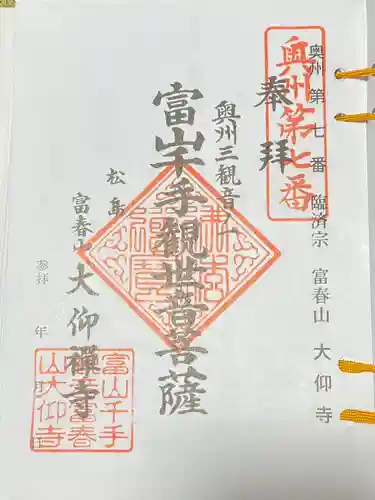 奥州 第 七 番 臨済宗 富春山 大 仰 寺
奥州第七番
奉拝
奥州三観音ノ一
富山千手観世音菩薩
松島
富春山 大仰禅寺
参拝 年 月 日
富山千手
富春
山大仰寺